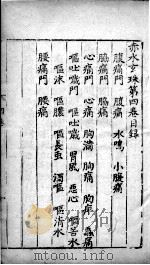 赤水玄珠第四卷目录
腹痛門 腹痛 水鳴 小腹痛
脇痛門 脇痛
心痛門 心痛 胸滿 胸痛 胸痺
嘔吐噦門 嘔吐噦 胃風 惡心 嘔苦水
嘔沫 嘔膿 嘔長虫 嘔清水
腰痛門 腰痛